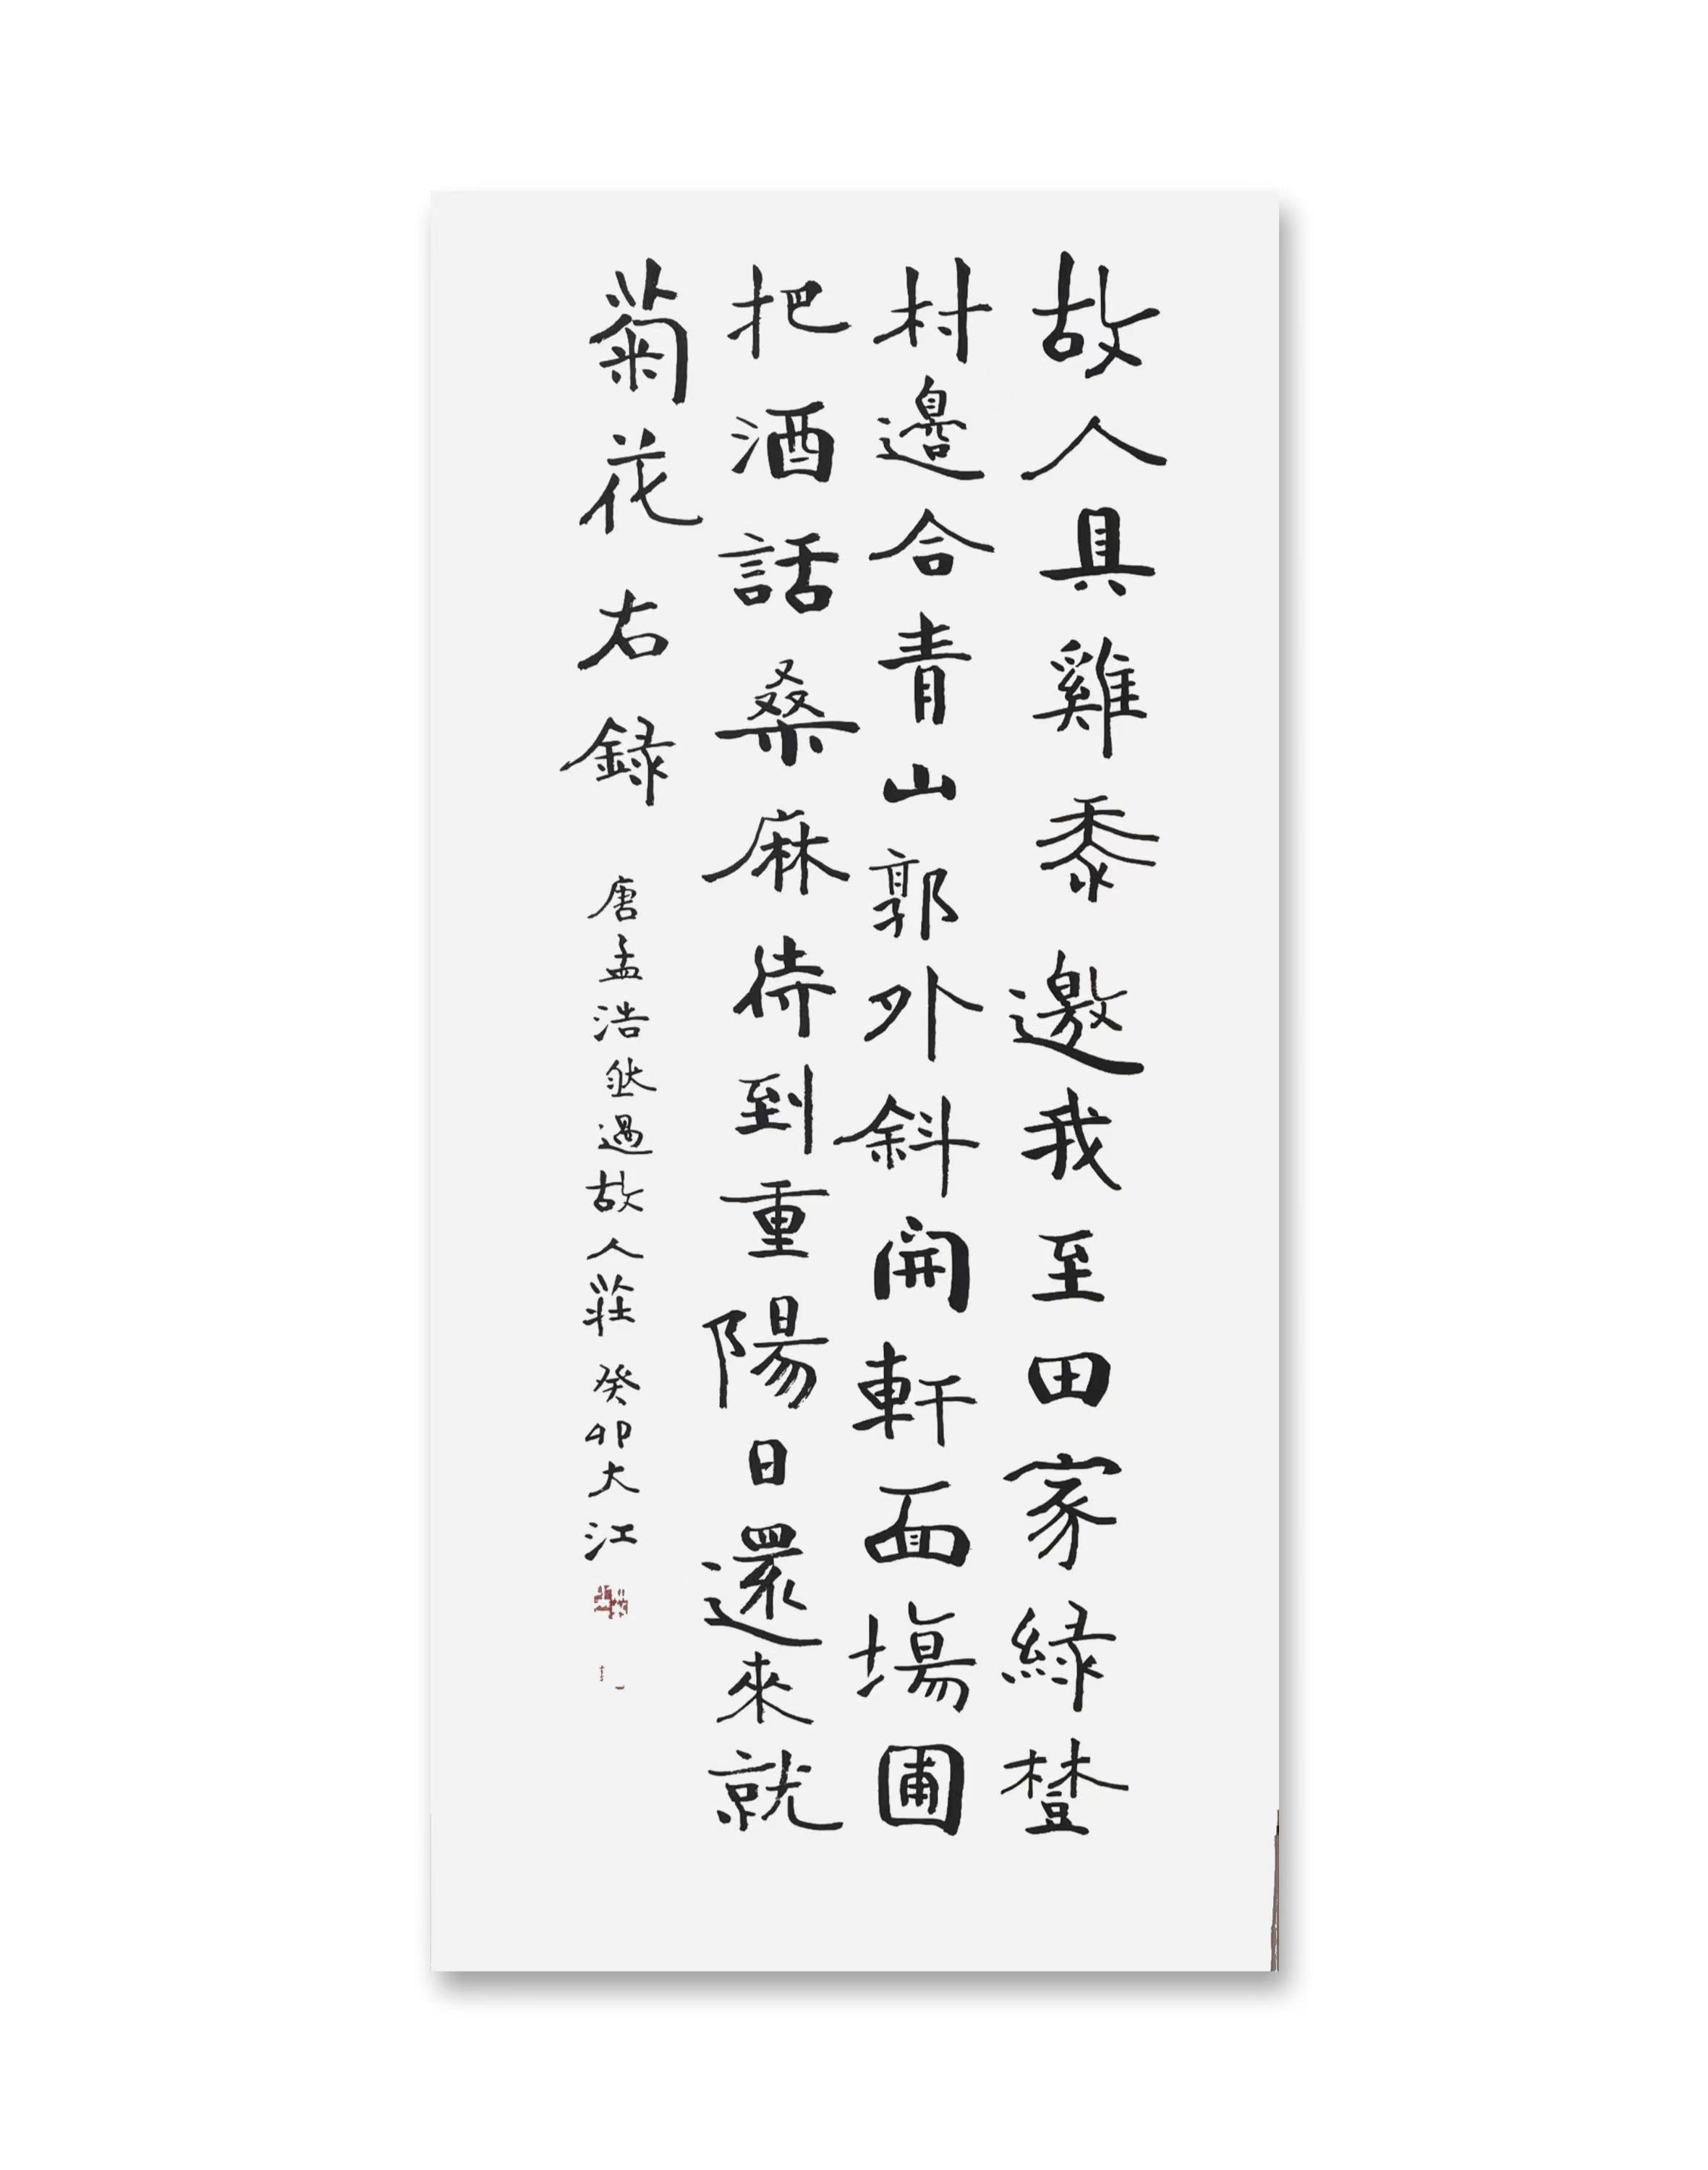 故人具雞黍邀我至田家緑樹
村邊合青山郭外斜開軒面塲圃
把酒話桑麻待到重陽日還來就
菊花右録 唐孟浩然過故人莊 癸卯大江